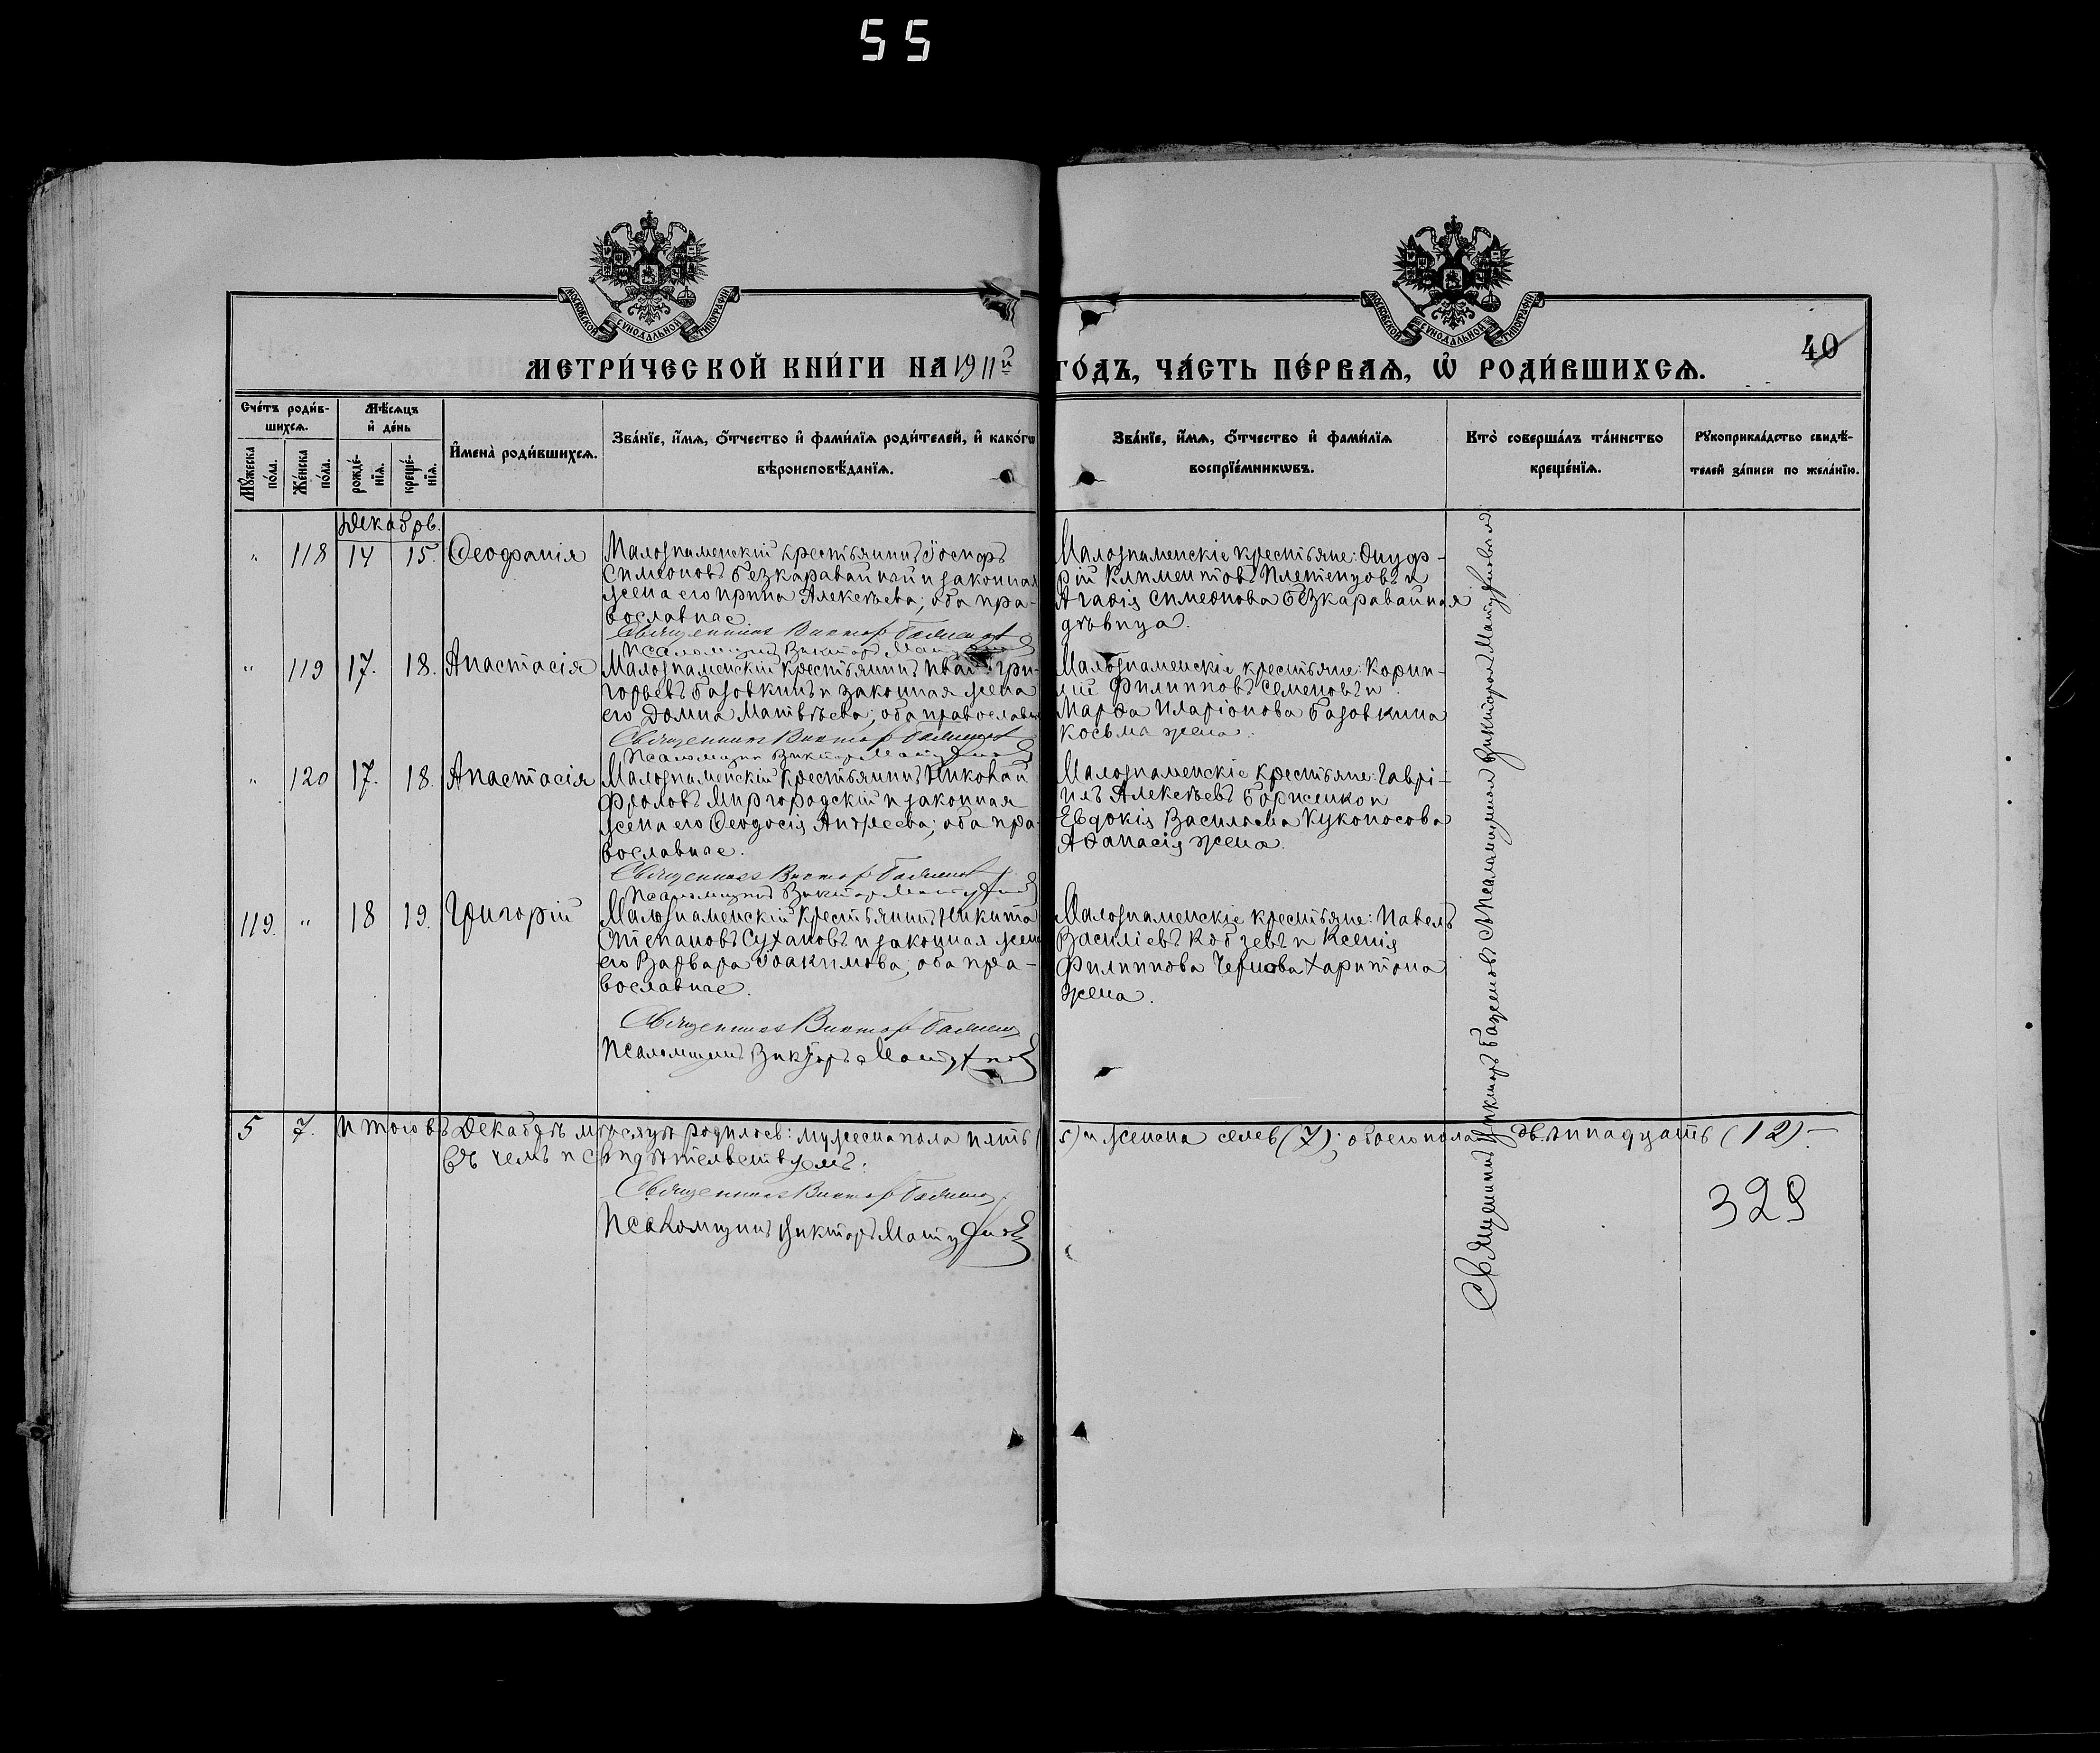 55
МОСКОВСКОЙ СѴНОДАЛЬНОЙ ТИПОГРАФІИ
МОСКОВСКОЙ СѴНОДАЛЬНОЙ ТИПОГРАФІИ
40
МЕТРИ́ЧЕСКОЙ КНИ́ГИ НА 1911й ГО́ДЪ, ЧА́СТЬ ПЕ́РВАѦ, Ѡ РОДИ́ВШИХСѦ.
Сче́тъ роди́в-
шихсѧ.
Мꙋ́жеска по́ла.
Же́нска по́ла.
Мѣ́сѧцъ
и҆ де́нь
рожде́-
нїѧ.
креще́-
нїѧ.
И҆мена̀ роди́вшихсѧ.
Зва́нїе, и҆́мѧ, ѻ҆́тчество и҆ фами́лїѧ роди́телей, и҆ како́гѡ
вѣроисповѣ́данїѧ.
Зва́нїе, и҆́мѧ, ѻ҆́тчество и҆ фами́лїѧ
воспрїе́мникѡвъ.
Кто̀ соверша́лъ та́инство
креще́нїѧ.
Рꙋкоприкла́дство свидѣ́-
телей за́писи по жела́нїю.
Декабрь.
" 118 14 15. Ѳеофанія
Малознаменскій крестьянинъ Іосифъ
Симеоновъ Безкаравайный и законная
жена его Ирина Алексѣева; оба пра-
вославные.
Священникъ Виктор Баженов
Псаломщикъ Викторъ
Малознаменскіе крестьяне: Онуф-
рій Климентовъ Плетенцовъ и
Агафія Симеонова Безкаравайная
дѣвица.
" 119 17. 18. Анастасія
Малознаменскій крестьянинъ Иванъ Гри-
горьевъ Базовкинъ и законная жена
его Домна Матвѣева; оба православн
Священникъ Виктор Баженов
Псаломщикъ Викторъ
Малознаменскіе крестьяне: Корни-
лій Филипповъ Семеновъ и
Марфа Иларіонова Базовкина
Косьма жена.
" 120 17. 18. Анастасія
Малознаменскій крестьянинъ Николай
Фроловъ Миргородскій и законная
жена его Ѳеодосія Андреева; оба пра-
вославные.
Священникъ Виктор Баженов
Псаломщикъ Викторъ
Малознаменскіе крестьяне: Гаврі-
илъ Алексѣевъ Борисенко и
Евдокія Василіева Куконосова
Аѳанасія жена.
119. " 18 19. Григорій
Малознаменскій крестьянинъ Никита
Степановъ Сухановъ и законная жена
его Варвара Іоакимова; оба пра-
вославные.
Священникъ Виктор Баженов
Псаломщикъ Викторъ
Малознаменскіе крестьяне: Павелъ
Василіевъ Кобзевъ и Ксенія
Филиппова Чернова Харитона
жена.
Священникъ Викторъ Баженовъ съ псаломщикомъ Викторомъ
5 7. Итого въ Декабрѣ мѣсяцѣ родилось: мужеска пола пять (5) и женска семь (7); обоего пола двѣнадцать (12).—
въ чемъ и свидѣтельствуемъ:
Священникъ Виктор Баженов
Псаломщикъ Викторъ
329